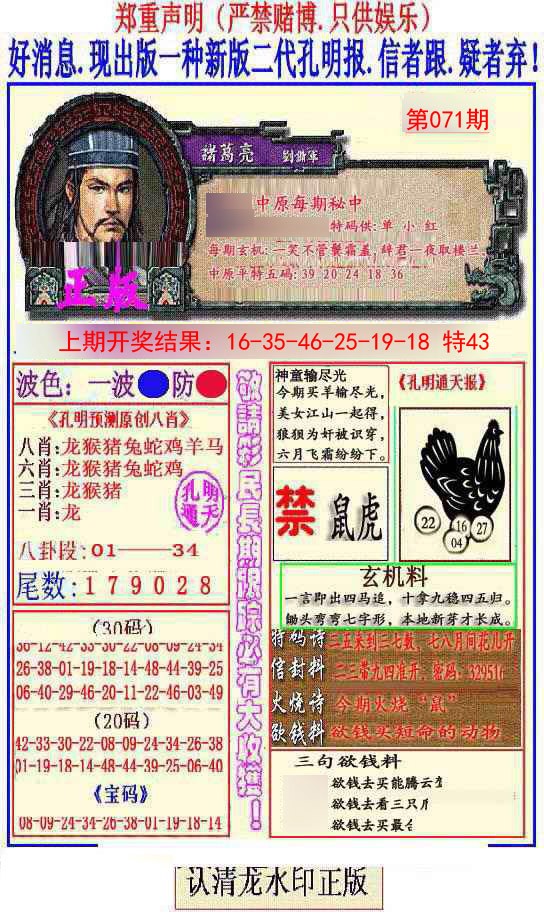 郑重声明（严禁赌博.只供娱乐）
好消息.现出版一种新版二代孔明报.信者跟.疑者弃！
第071期
諸葛亮 劉備軍
中原每期秘中
特码供:单 小 红
每期玄机:一笑不管鬢霜盖,辞君一夜取楼兰
中原平特五码:39 20 24 18 36
正版
上期开奖结果：16-35-46-25-19-18 特43
波色：一波 防
《孔明预测原创八肖》
八肖:龙猴猪兔蛇鸡羊马
六肖:龙猴猪兔蛇鸡
三肖:龙猴猪
一肖:龙
孔明
通天
八卦段:01——34
尾数:179028
(30码)
36-12-42-33-30-22-08-09-24-34
26-38-01-19-18-14-48-44-39-25
06-40-29-46-20-11-22-46-03-49
(20码)
42-33-30-22-08-09-24-34-26-38
01-19-18-14-48-44-39-25-06-40
《宝码》
08-09-24-34-26-38-01-19-18-14
敬請彩民長期跟踪必有大收獲！
神童输尽光
今期买羊输尽光，
美女江山一起得，
狼狈为奸被识穿，
六月飞霜纷纷下。
《孔明通天报》
禁 鼠虎
22 16 27
04
玄机料
一言即出四马追，十拿九稳四五归。
锄头弯弯七字形，本地新芽才长成。
特码诗 三五来到三七数，七八月间花儿开
信封料 二三带九四准开，密码：329516
火烧诗 今期火烧“鼠”
欲钱料 欲钱买短命的动物
三句欲钱料
欲钱去买能腾云
欲钱去看三只
欲钱去买最
认清龙水印正版